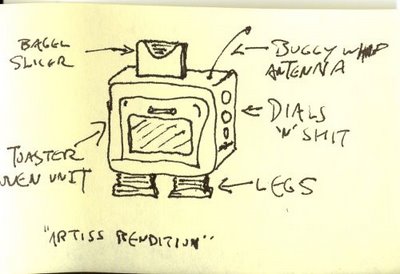 BAGEL
SLICER
BUGGY WHIP
ANTENNA
DIALS
'N' SHIT
TOASTER
OVEN UNIT
LEGS
"ARTISS RENDITION"